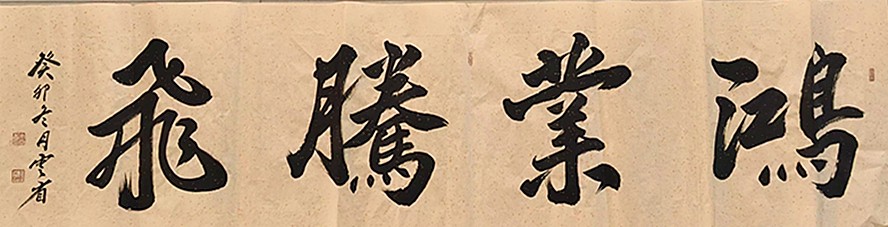 鴻業騰飛
癸卯冬月雲省